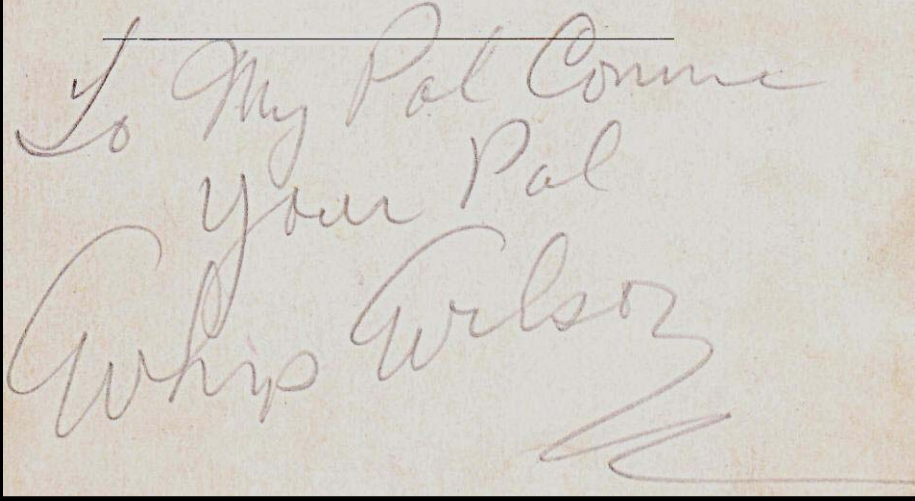 To My Pal Connie
Your Pal
Whip Wilson